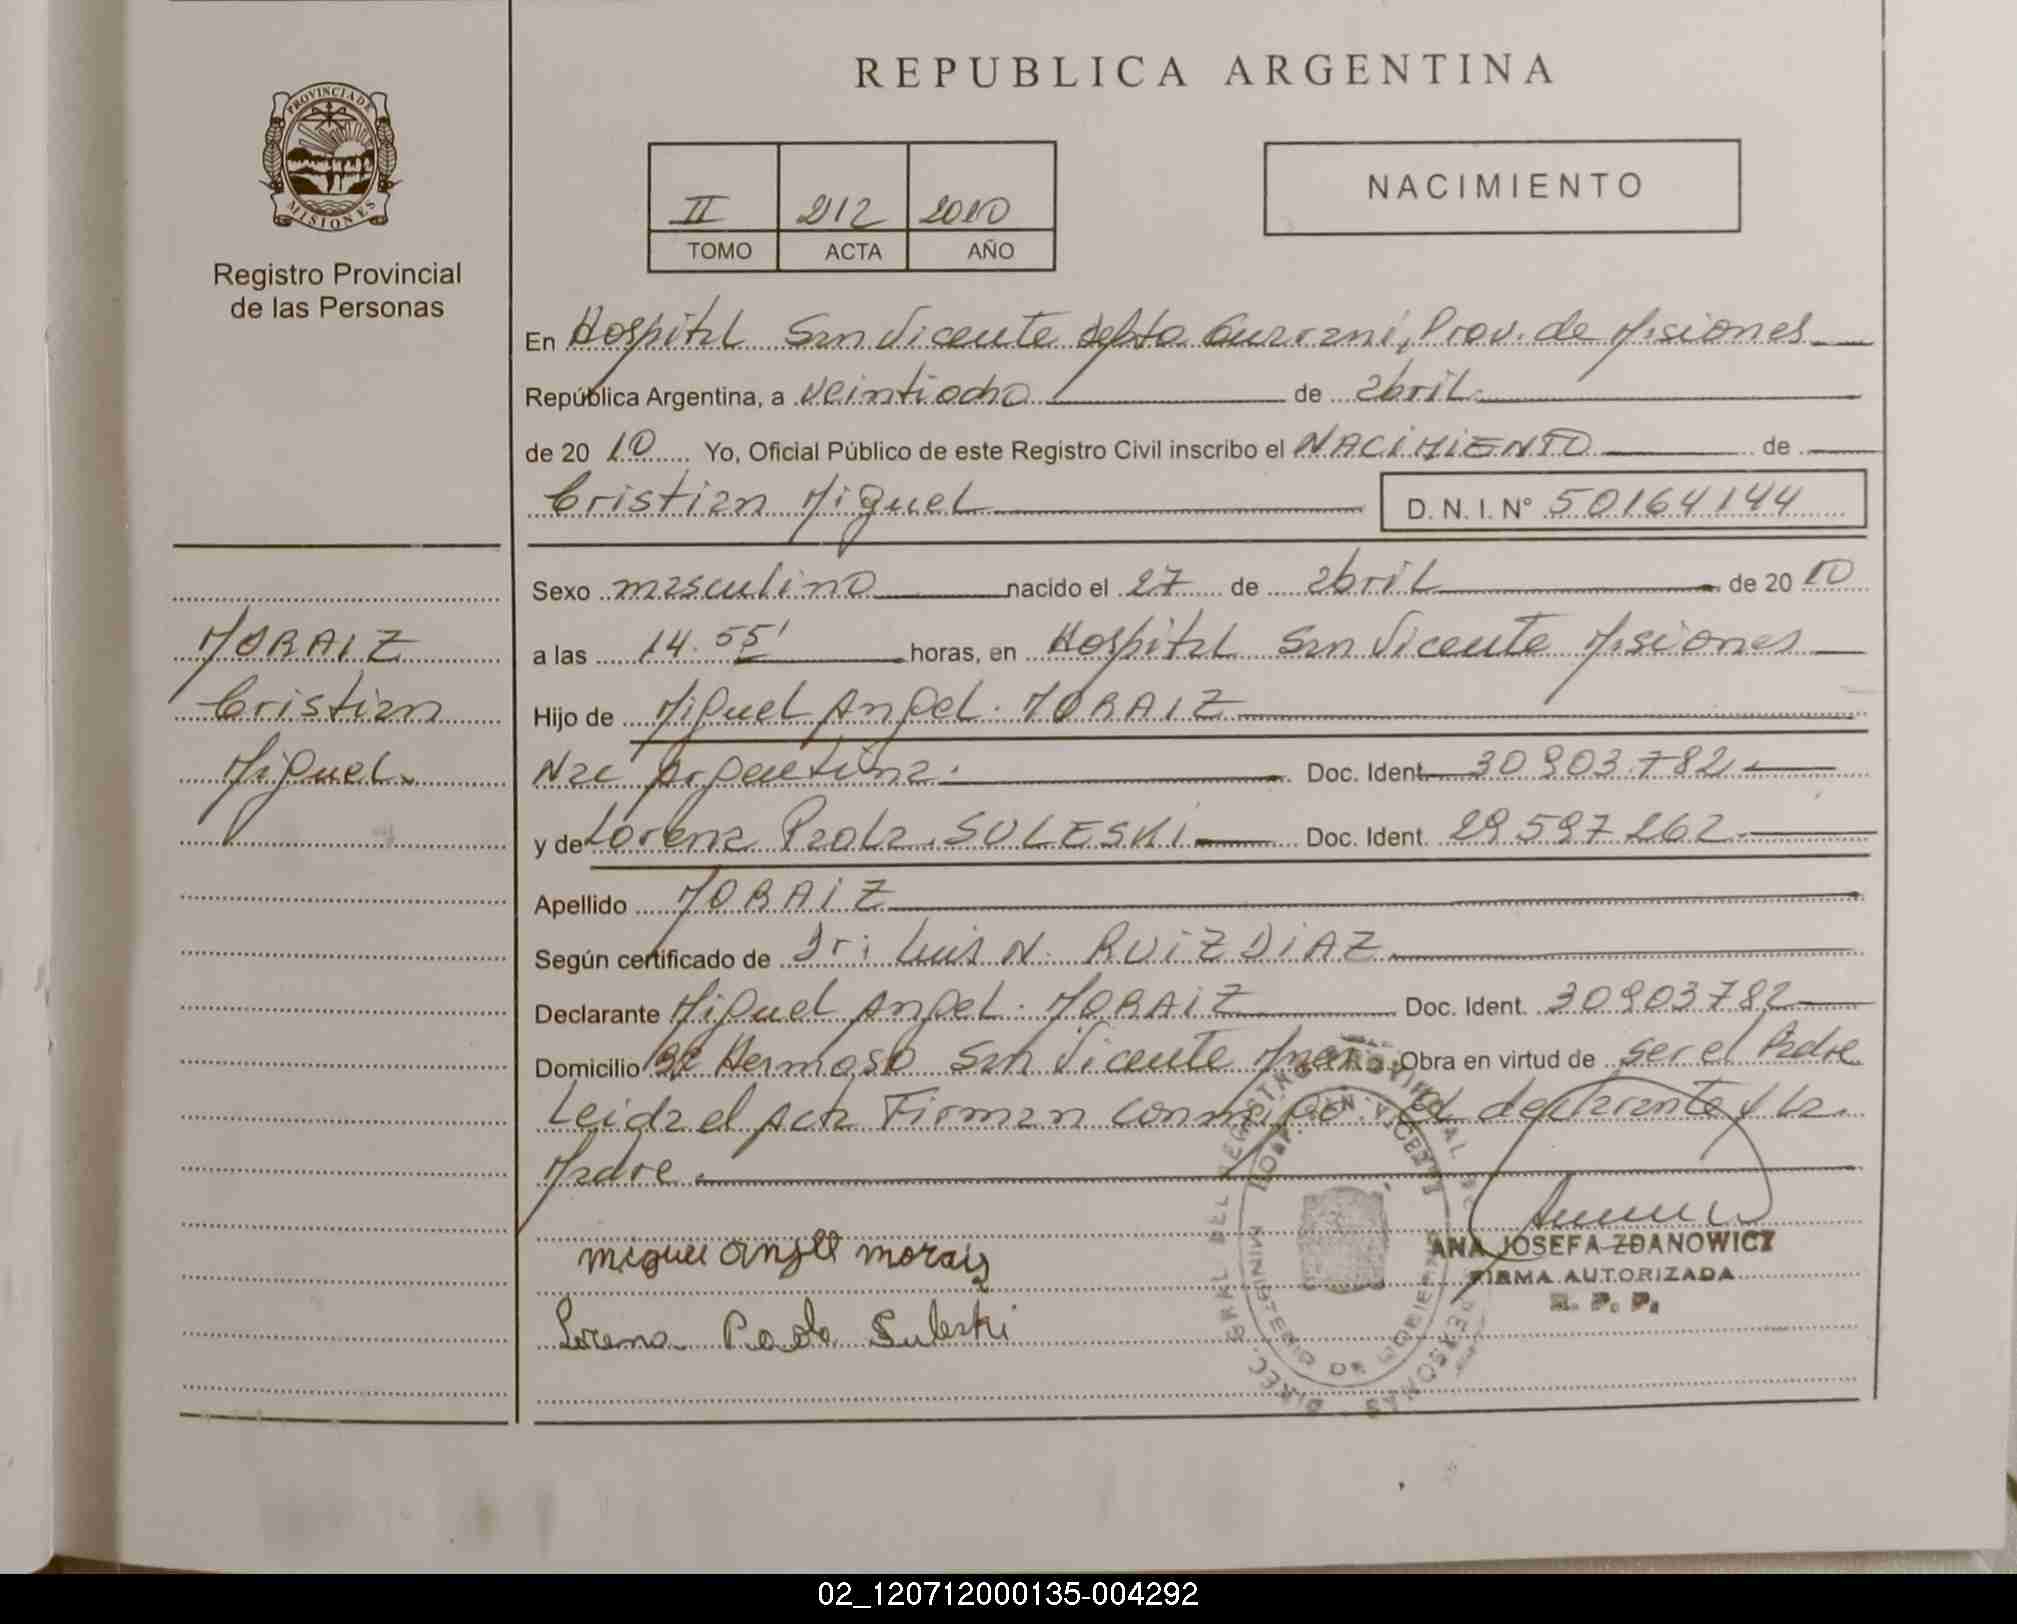 REPUBLICA ARGENTINA
PROVINCIA DE MISIONES
Registro Provincial
de las Personas
II 212 2010
TOMO ACTA AÑO
NACIMIENTO
En Hospital San Vicente depto Guarani, Prov. de Misiones
República Argentina, a veintiocho de abril
de 20 10 Yo, Oficial Público de este Registro Civil inscribo el NACIMIENTO de
Cristian Miguel D. N. I. N° 50164144
Sexo masculino nacido el 27 de abril de 20 10
a las 14.55' horas, en Hospital San Vicente Misiones
Hijo de Miguel Angel. MORAIZ
Nac Argentina. Doc. Ident. 30903.782.
y de Lorena Paola. SULESKI Doc. Ident. 29.597.262.
Apellido MORAIZ
Según certificado de Dr: Luis N. RUIZ DIAZ
Declarante Miguel Angel. MORAIZ Doc. Ident. 30903782
Domicilio Hermoso San Vicente Obra en virtud de ser el Padre
Leida el Acta Firman conmigo el declarante y la
Madre
MORAIZ
Cristian
Miguel.
miguel angel moraiz
Lorena Paola Suleski
ANA JOSEFA ZDANOWICZ
FIRMA AUTORIZADA
R. P. P.
DIREC. GRAL DEL REGISTRO PROVINCIAL DE LAS PERSONAS
MINISTERIO DE GOBIERNO
02_120712000135-004292